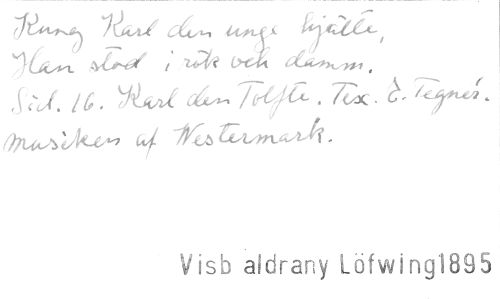 Kung Karl den unge hjälte,
Han stod i rök och damm.
Sid. 16. Karl den Tolfte. Tex. E. Tegnér.
musiken af Westermark.
Visb aldrany Löfwing1895